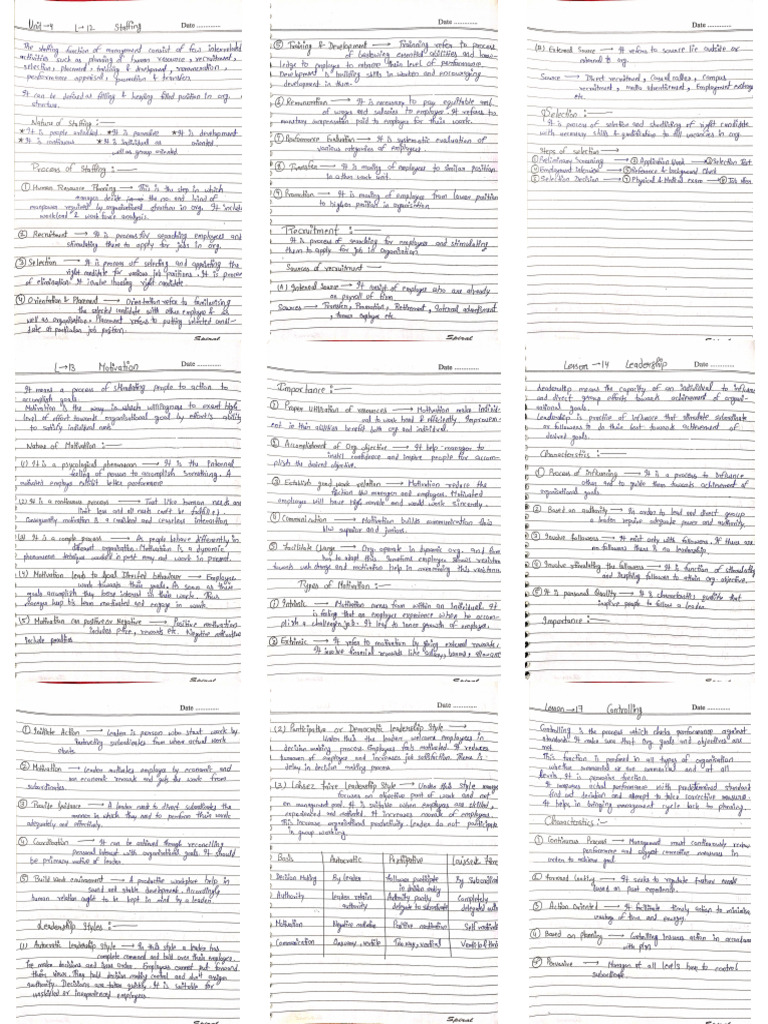 Unit-4 L→12 Staffing Date ...........
The staffing function of management consist of few interrelated
activities such as planning of human resource, recruitment,
selection, placement, training & development, remuneration,
performance appraisal, promotion & transfers
It can be defined as filling & keeping filled position in org.
structure.
Nature of Staffing :—
* It is people oriented * It is pervasive * It is development
* It is continuous * It is individual as oriented
well as group oriented
Process of Staffing :—
① Human Resource Planning → This is the step in which
the no. and kind of
manpower required by organisational structure in org. It include
workload & work force analysis.
② Recruitment → It is process for searching employees and
stimulating them to apply for jobs in org.
③ Selection → It is process of selecting and appointing the
right candidate for various job positions. It is process
of elimination. It involve choosing right candidate.
④ Orientation & Placement → Orientation refer to familiarising
the selected candidate with other employee & as
well as organisation. Placement refers to putting selected candi-
date at particular job position.
Spiral
Date ...........
⑤ Training & Development → Trainning refer to process
of
ledge to employee to enhance their level of performance.
Development is building skills in workers and encouraging
development in them.
⑥ Remuneration → It is necessary to pay equitable
of wages and salaries to employee. It refers to
monetary compensation paid to employee for their work.
⑦ Performance Evaluation → It is systematic evaluation of
various categories of employees.
⑧ Transfer → It is moving of employees to similar position
in other work unit.
⑨ Promotion → It is moving of employees from lower position
to higher position in organisation
Recruitment :—
It is process of searching for employee and stimulating
them to apply for job in organisation
Sources of recruitment —
(A) Internal Source → It consist of employee who are already
on payroll of firm
Sources → Transfer, Promotion, Retirement, Internal advertisement,
former employee etc.
Spiral
Date ...........
(B) External Source → It refers to source lie outside or
external to org.
Source → Direct recruitment, Casual callers, campus
recruitment, media advertisement, Employment exchange
etc.
Selection :—
It is process of selection and shortlisting of right candidate
with necessary skills & qualification to fill vacancies in org.
Steps of selection →
① Preliminary Screening → ② Application Blank → ③ Selection Test
④ Employment Interview → ⑤ Reference & background Check
⑥ Selection Decision → ⑦ Physical & Medical exam → ⑧ Job offer
L→13 Motivation Date ...........
It means a process of stimulating people to action to
accomplish goals
Motivation is the way in which willingness to exert high
level of effort towards organisational goal by effort's ability
to satisfy individual need
Nature of Motivation :—
(1) It is a psycological phenomenon → It is the internal
feeling of person to accomplish something. A
motivated employee exhibit better performance
(2) It is a continuous process → Just like human needs are
limit less and all needs can't be fulfilled.
Consequently motivation is a constant and ceaseless interaction
(3) It is a complex process → As people behave differently in
different organisation. Motivation is a dynamic
phenomenon technique worked in past may not work in present.
(4) Motivation leads to Goal Directed behaviour → Employee
work towards their goals. As soon as these
goals accomplish they loose interest in their work. Thus
managers keep his team motivated and engage in work.
(5) Motivation can positive or Negative → Positive motivation
includes price, rewards etc. Negative motivation
include penalties
Spiral
Date ...........
Importance :—
① Proper Utilisation of resources → Motivation make individ-
ual to work hard & efficiently. Improvem-
ent in their abilities benefit both org and individual.
② Accomplishment of Org. objective → It help manager to
instill confidence and inspire people for accom-
plish the desired objective.
③ Establish good work relation → Motivation reduce the
friction b/w managers and employees. Motivated
employee will have high morale and would work sincerely.
④ Communication → Motivation builds communication line
b/w superior and juniors.
⑤ Facilitate Change → Org. operate in dynamic org. and firm
has to adapt this. Sometimes employee shows resistance
towards such change and motivation help in overcoming this resistance
Types of Motivation :—
① Intrinsic → Motivation arises from within an individual. It
is feeling that an employee experience when he accom-
plish a challenging job. It lead to inner growth of employee.
② Extrinsic → It refer to motivation by giving external rewards.
It involve financial rewards like salary, bonus,
Spiral
Lesson → 14 Leadership Date ...........
Leadership means the capacity of an individual to influence
and direct group efforts towards achievement of organi-
sational goals.
Leadership is practice of influence that stimulate subordinate
or followers to do their best towards achievement of
desired goals.
Characteristics :—
① Process of Influencing → It is a process to influence
other and to guide them towards achievement of
organisational goals.
② Based on authority → In order to lead and direct group
a leader require adequate power and authority.
③ Involve followers → It exist only with followers. If there are
no followers there is no leadership.
④ Involve stimulating the followers → It is function of stimulating
and inspiring followers to attain org objective.
⑤ It is personal Quality → It is characteristics, quality that
inspire people to follow a leader.
Importance :—
Date ...........
① Initiate Action → Leader is person who start work by
instructing subordinates from where actual work
starts.
② Motivation → Leader motivates employee by economic and
non economic rewards and gets the work from
subordinates.
③ Provide Guidance → A leader need to direct subordinates the
manner in which they need to perform their work
adequately and effectively.
④ Coordination → It can be achieved through reconciling
personal interest with organisations goals. It should
be primary motive of leader.
⑤ Build work environment → A productive workplace help in
sound and stable development. Accordingly
human relation ought to be kept in mind by a leader.
Leadership Styles :—
(1) Autocratic Leadership Style → In this style a leader has
complete command and hold over their employee.
He make decisions and issue order. Employees cannot put forward
their views. They hold decision making control and don't assign
authority. Decisions are taken quickly. It is suitable for
unskilled or inexperienced employees
Date ...........
(2) Participative or Democratic Leadership Style →
Under this the leader welcome employees in
decision making process. Employees feels motivated. It reduces
turnover of employee and increases job satisfaction. There is
delay in decision making process
(3) Laissez faire Leadership Style → Under this style manager
focuses on objective part of work and not
on management part. It is suitable when employees are skilled,
experienced and motivated. It increases morale of employees.
This increase organisational productivity. Leader do not participate
in group working.
Basis Autocratic Participative Laissez faire
Decision Making By leader Followers participate in decision making By Subordinates
Authority Leader retain authority Authority partly delegate to subordinate Completely delegated
Motivation Negative motivation Positive motivation Self motivation
Communication One way, vertical Two way, vertical
Spiral
Lesson → 17 Controlling Date ...........
Controlling is the process which checks performance against
standards. It make sure that org goals and objectives are
met.
This function is performed in all types of organisation
whether commercial or non commercial and at all
levels. It is pervasive function.
It compares actual performance with predetermined standard
find out deviation and attempt to take corrective measure.
It helps in bringing management cycle back to planning.
Characteristics :—
① Continuous Process → Management must continuously review
performance and suggest corrective measures in
order to achieve goal
② Forward Looking → It seeks to regulate future events
based on past experience.
③ Action Oriented → It facilitate timely action to minimise
wastage of time and energy.
④ Based on Planning → Controlling insures action in accordance
with plan
⑤ Pervasive → Managers at all levels have to control
subordinate.
Spiral